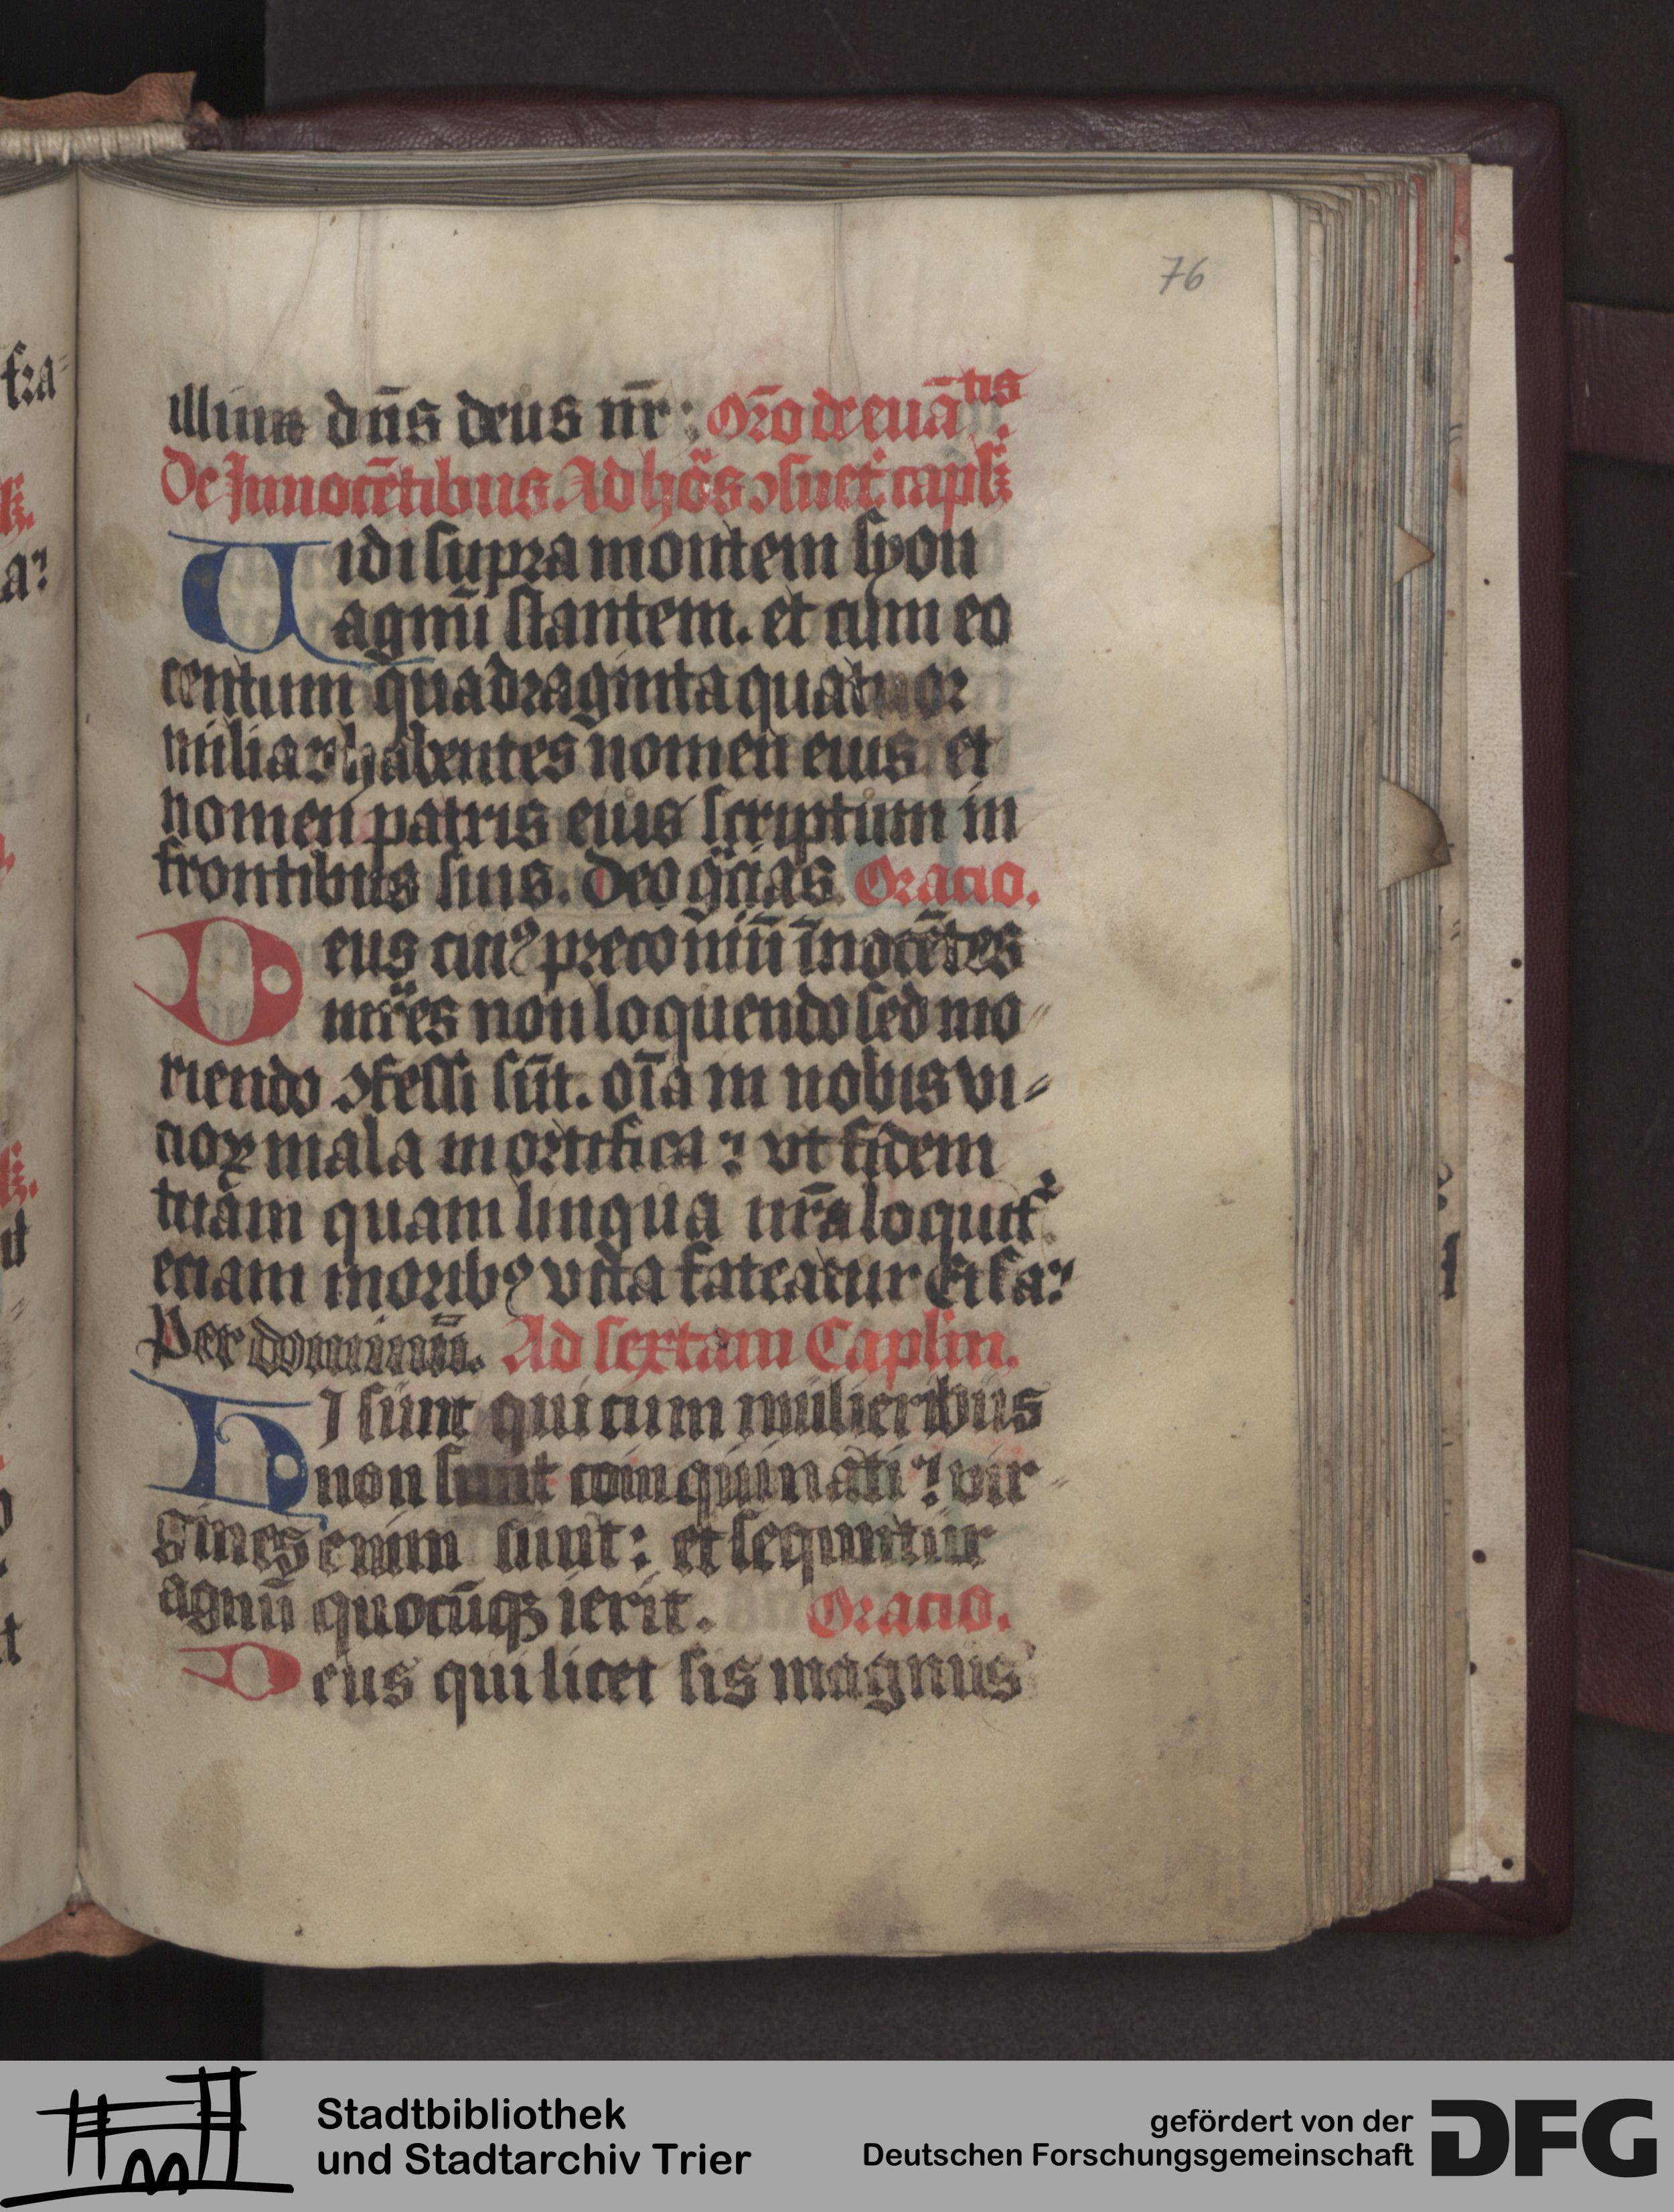 fra-
a?
76
illius dn̄s deus nr̄: Or̄o de euā tis
De Innocētibus. Ad ho͛s ɔsuet͛. capl̄ꝫ
Vidi supra montem syon
agnū stantem. et cum eo
centum quadraginta quatuor
milia habentes nomen eius et
nomen patris eius scriptum in
frontibus suis. Deo gr̄cias. Oracio.
Deus cui⁹ preconiū īnocētes
mr̄es non loquendo sed mo-
riendo ɔfessi sūt. oīa in nobis vi-
cioꝝ mala mortifica? vt fidem
tuam quam lingua nr̄a loquit͛.
eciam morib⁹ vita fateatur Et fa?
Per dominū. Ad sextam Caplm.
HI sunt qui cum mulieribus
non sunt coinquinati? vir-
gines enim sunt: et sequntur
agnū quocūqꝫ ierit. Oracio.
Deus qui licet sis magnus
Stadtbibliothek
und Stadtarchiv Trier
gefördert von der
Deutschen Forschungsgemeinschaft
DFG